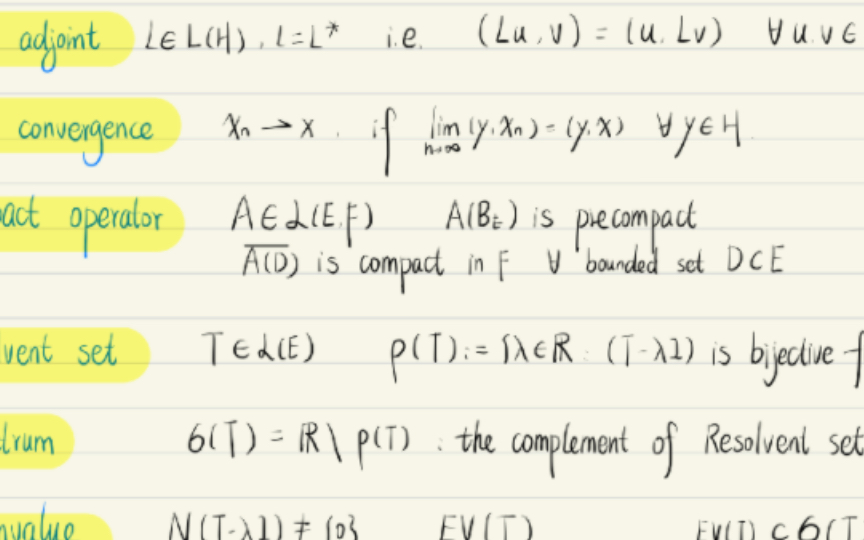 adjoint L∈L(H), L=L* i.e. (Lu, v) = (u, Lv) ∀ u.v ∈
convergence xn → x . if lim n→∞ (y, xn) = (y, x) ∀ y ∈ H
act operator A∈L(E,F) A(BE) is precompact
A(D) is compact in F ∀ bounded set D⊂E
vent set T∈L(E) ρ(T) := {λ∈R : (T-λI) is bijective f
trum σ(T) = R \ ρ(T) : the complement of Resolvent set
nvalue N(T-λI) ≠ {0} EV(T) EV(T) ⊂ σ(T